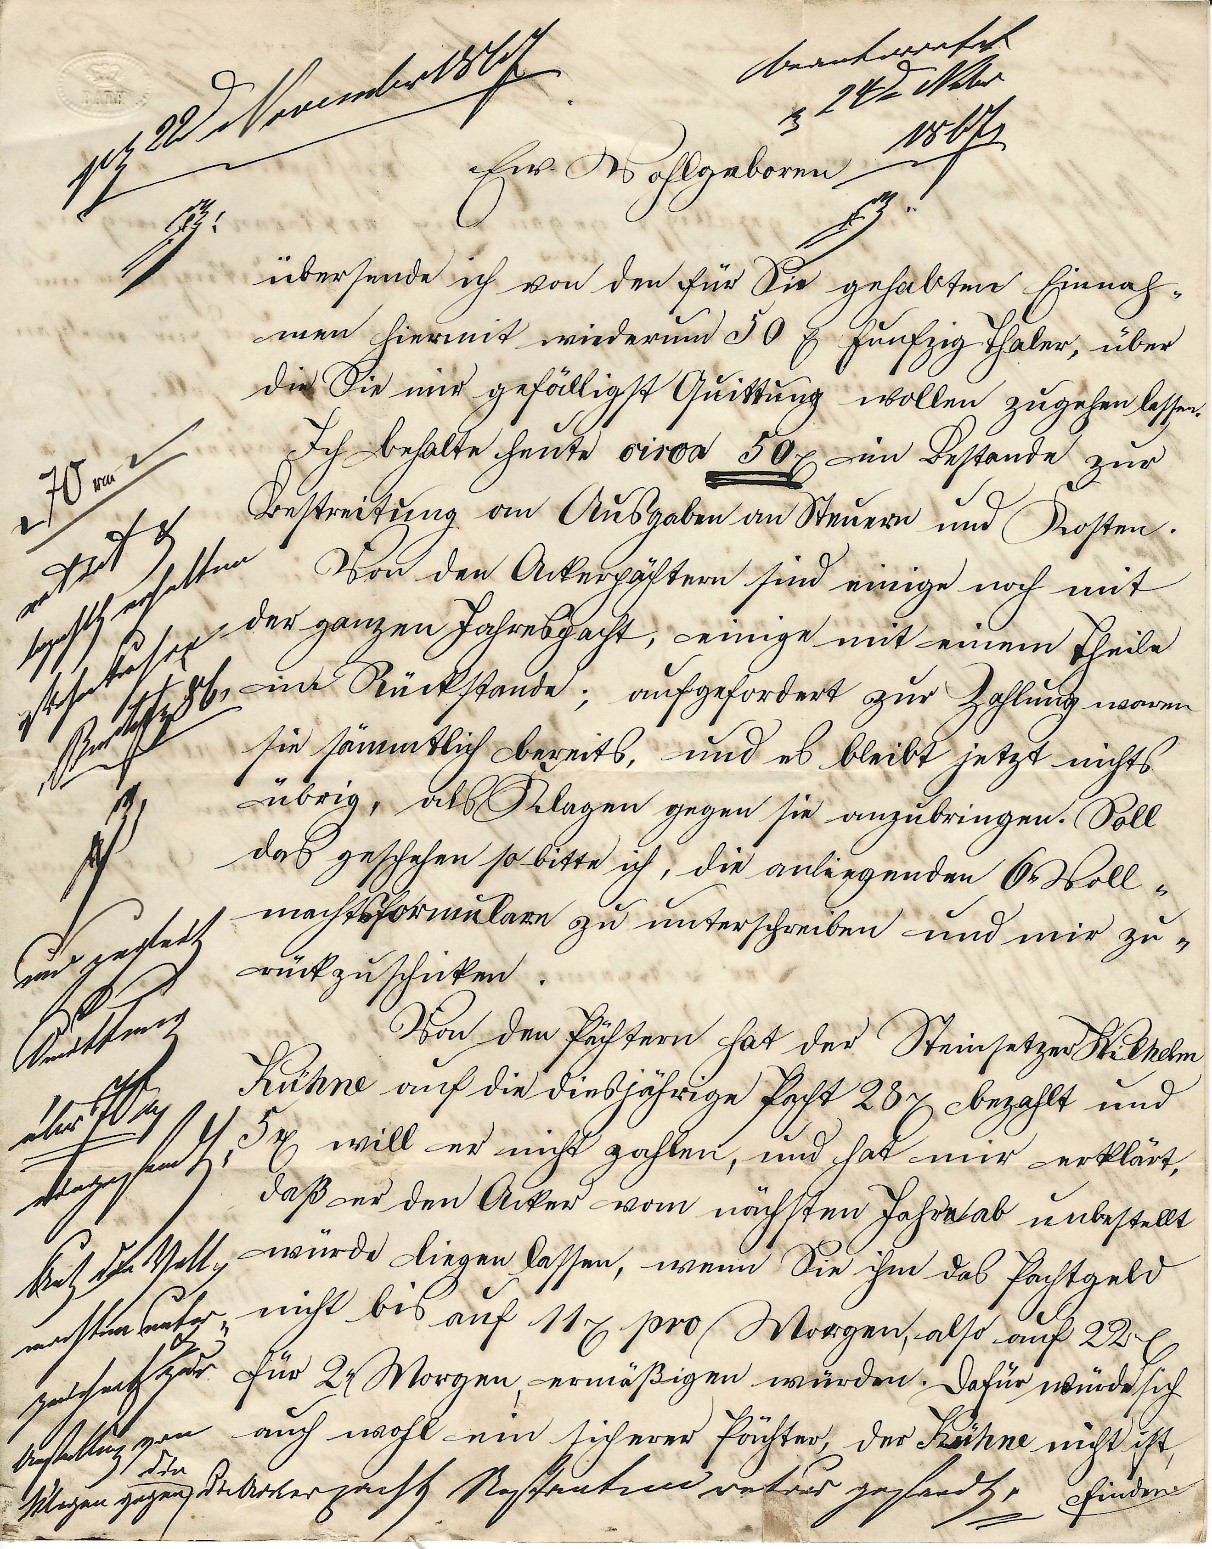 22 November 1867
beantwortet
24 Nbr
1867
Ew. Wohlgeboren
übersende ich von den für Sie gehabten Einnah-
men hiermit wiederum 50 funfzig Thaler, über
die Sie mir gefälligst Quittung wollen zugehen lassen.
Ich behalte heute circa 50 im Bestande zur
Bestreitung an Ausgaben an Steuern und Kosten.
Von den Ackerpächtern sind einige noch mit
der ganzen Jahrespacht, einige mit einem Theile
im Rückstande; aufgefordert zur Zahlung waren
sie sämmtlich bereits, und es bleibt jetzt nichts
übrig, als Klagen gegen sie anzubringen. Soll
das geschehen so bitte ich, die anliegenden 6 Voll-
machtsformulare zu unterschreiben und mir zu-
rückzuschicken.
Von den Pächtern hat der Steinsetzer Wilhelm
Kühne auf die diesjährige Pacht 23 bezahlt und
5 will er nicht zahlen, und hat mir erklärt,
daß er den Acker vom nächsten Jahre ab unbestellt
würde liegen lassen, wenn Sie ihm das Pachtgeld
nicht bis auf 11 pro Morgen, also auf 22
für 2 Morgen, ermäßigen würden. Dafür würde sich
auch wohl ein sicherer Pächter, der Kühne nicht ist,
finden
70
erhalten
und
Quittung
über 70
eingesandt,
die Voll-
machten unter-
zeichnet zur
Anstellung von
Klagen gegen die Ackerpacht Restanten retour gesandt.